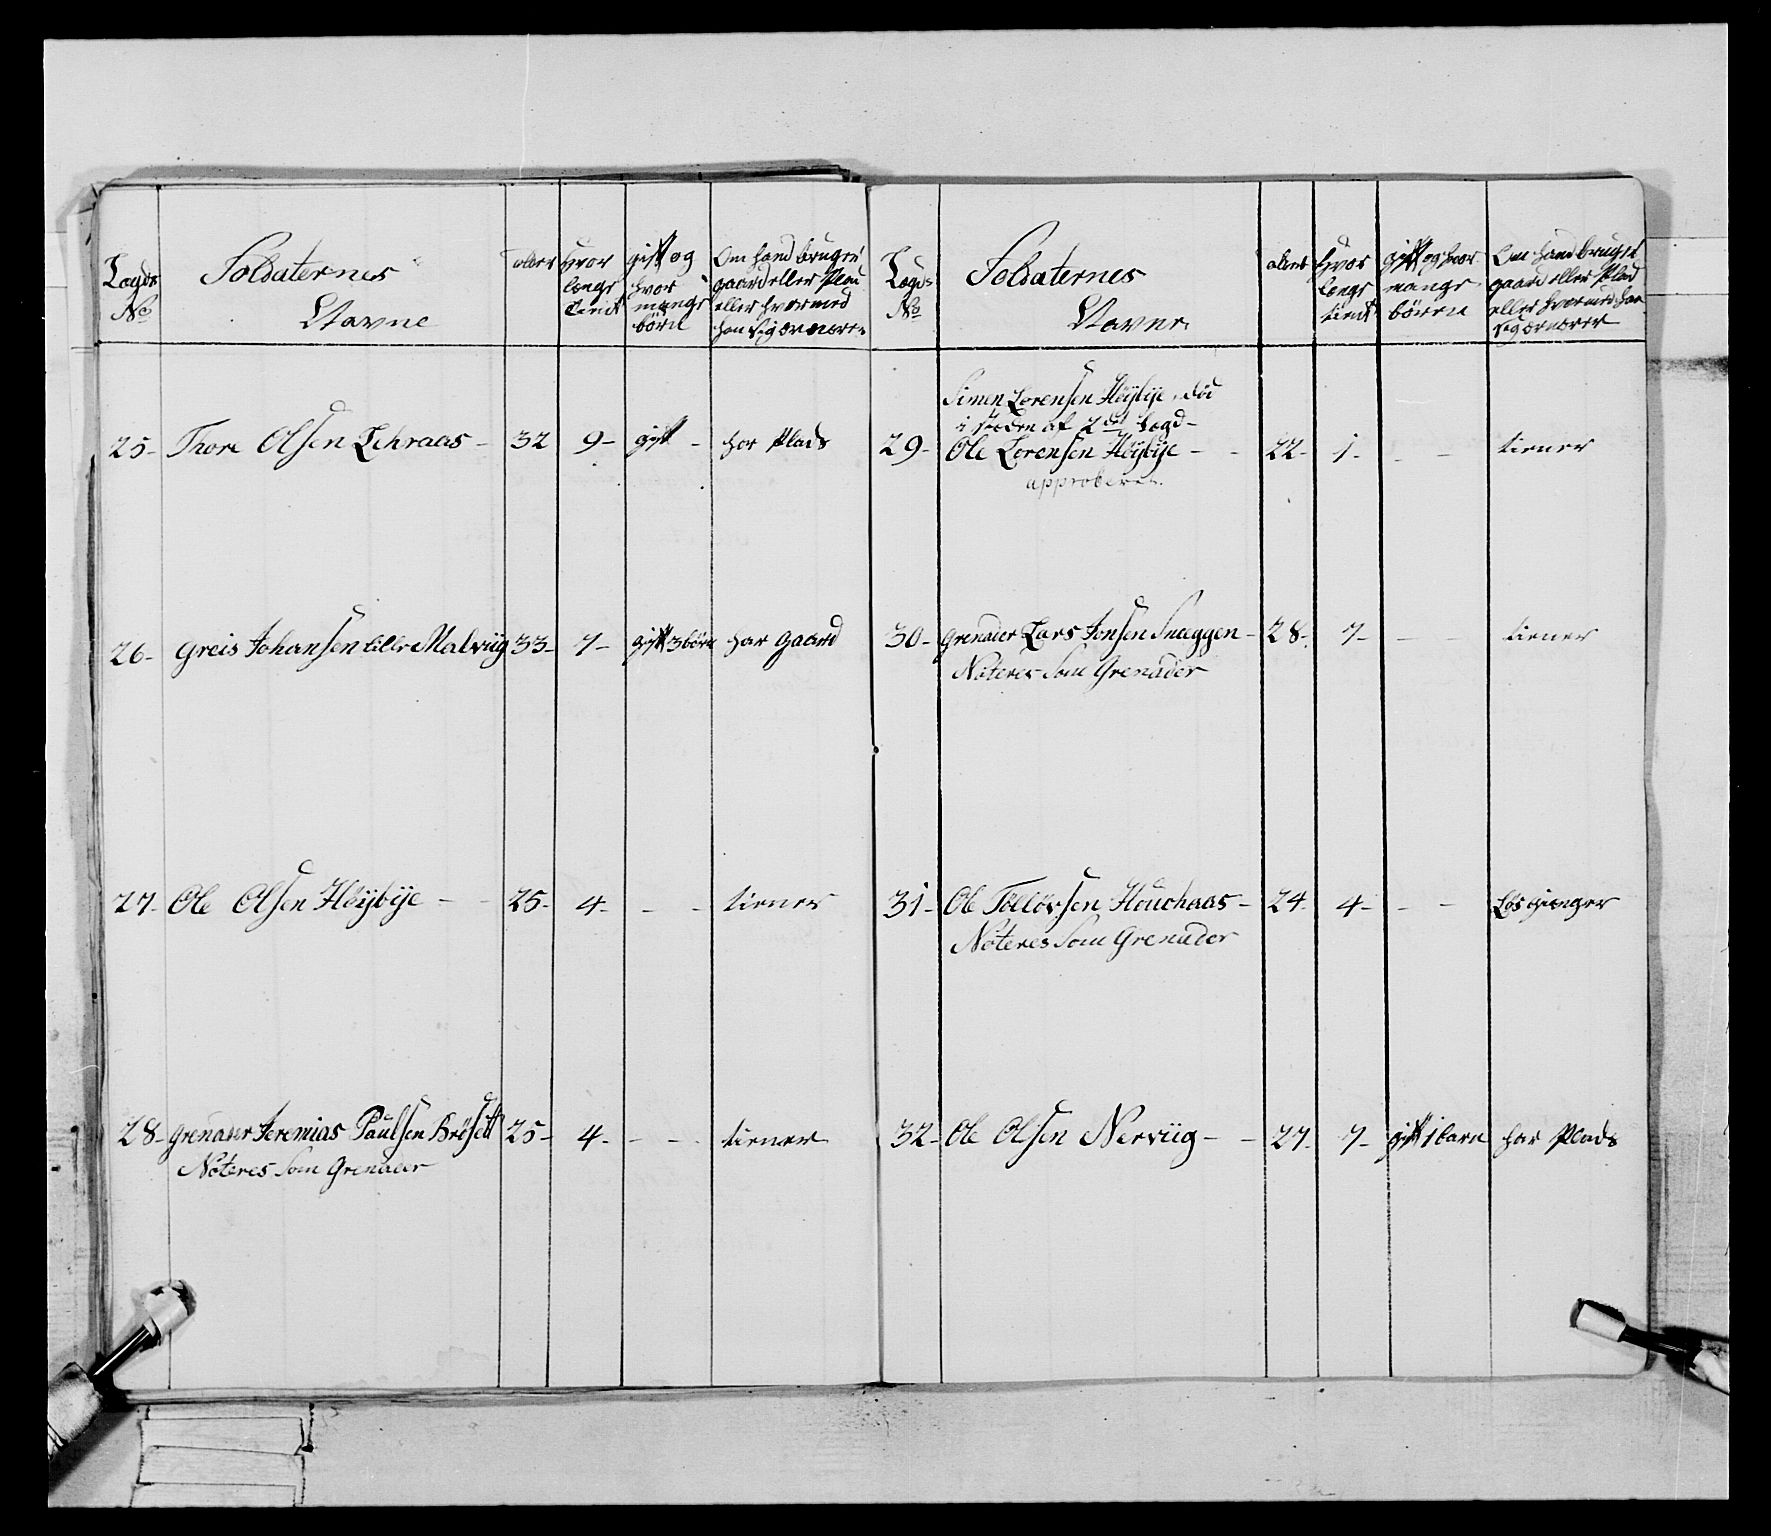 Lægds No
Soldaternes
Navne
alder
hvor længe tient
gift og hvor mange børn
Om hand bruger gaard eller Plads eller hvormed han sig ernærer
25- Thore Olsen Lehraas - 32 9- gift - har Plads
26- Greis Johansen lille Malviig 33- 7- gift 3 børn har gaard
27- Ole Olsen Høÿbÿe - - 25- 4- - - tiener
28- Grenader Jeremias Paulsen Brøsett 25- 4- - - tiener
Noteres Som Grenader
Lægds No
Soldaternes
Navne
alder
hvor længe tient
gift og hvor mange børn
Om hand bruger gaard eller Plads eller hvormed han sig ernærer
Simen Lorensen Høÿbÿe, død
i steden af 2det Lægd-
29- Ole Lorensen Høÿbÿe - - 22- 1- - - tiener
approberet.
30- Grenader Lars Jonsen Snæggen - 28- 7- - - tiener
Noteres Som Grenader
31- Ole Tølløvsen Houchaas - 24- 4- - - Løsgienger
Noteres Som Grenader
32- Ole Olsen Nerviig - - 27- 7- gift 1 barn har Plads